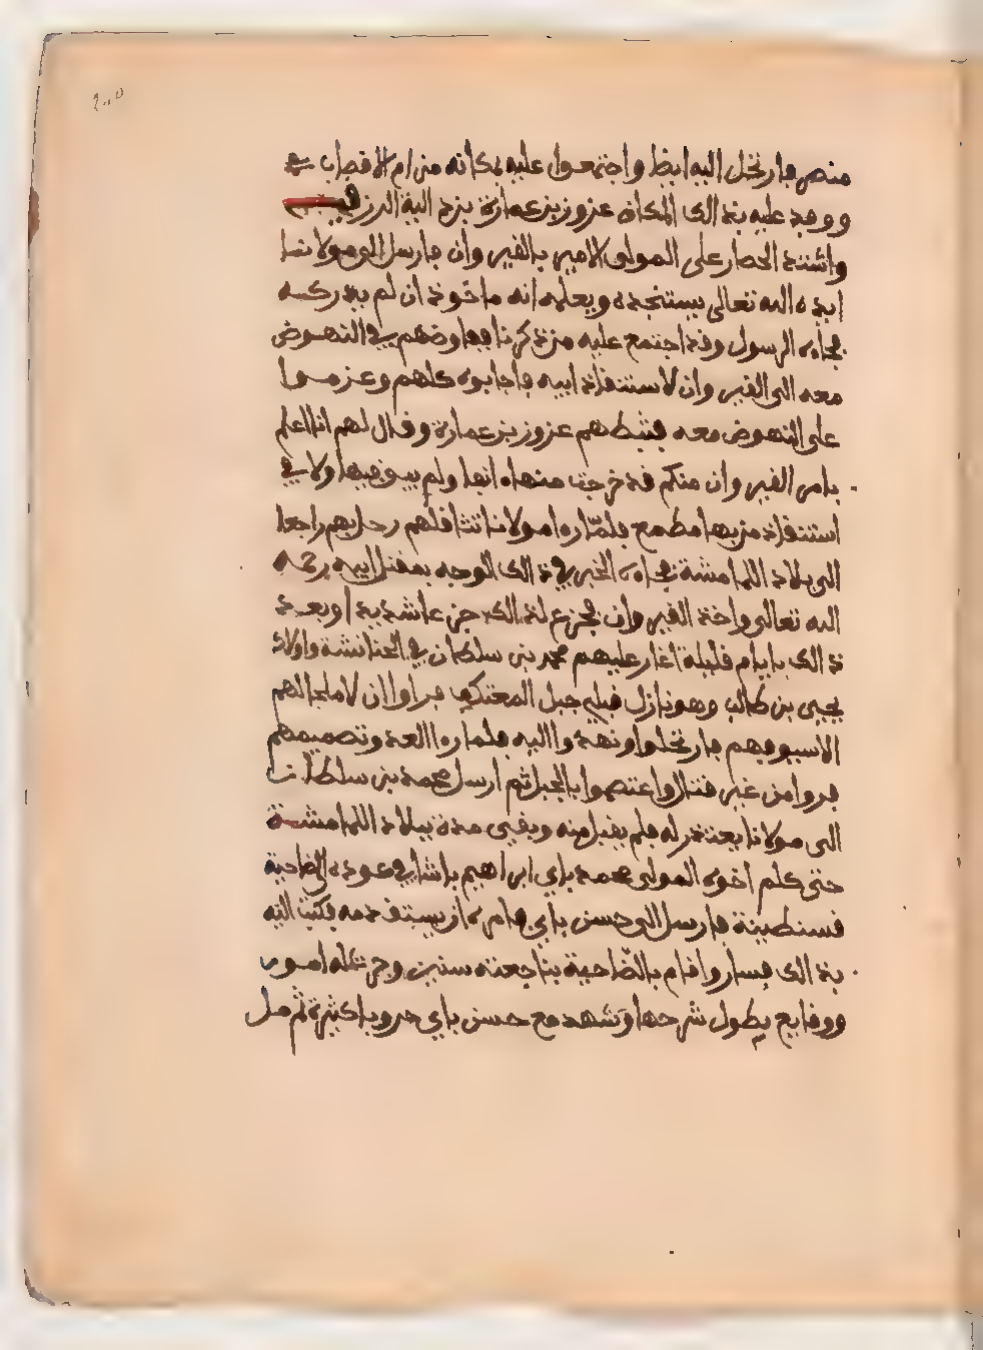 منصر فارتحل اليه ايظا واجتمعوا عليه بمكانه من ام الاقصاب في
ووجد عليه بذالك المكان عزوز بن عمارة بزد الية الدرز
واشتد الحصار على المولى الامير بالقيروان فارسل الى مولانا
ايده الله تعالى يستنجده ويعلمه انه ماخوذ ان لم يدركه
فجاء الرسول وقد اجتمع عليه من ذكرنا ففاوضهم في النهوض
معه الى القيروان لاستنقاذ ابيه فاجابوه كلهم وعزموا
على النهوض معه فثبطهم عزوز بن عمارة وقال لهم انا اعلم
بامر القيروان منكم قد خرجت منها انفا ولم يبق فيها ولا في
استنقاذ من بها مطمع فلما راى مولانا تثاقلهم رحل بهم راجعا
الى بلاد اللمامشة فجاءه الخبر في ذالك الوجه بمقتل ابيه رحمه
الله تعالى واخذ القيروان فجزع لذالك جزعا شديدا وبعد
ذالك بايام قليلة اغار عليهم محمد بن سلطان في الحنانشة واولاد
يحيى بن طالب وهو نازل قبلي جبل المعتكف فراوا ان لا ملجا لهم
الا سيوفهم فارتحلوا ونهدوا اليه فلما راى العد وتصميمهم
فروا من غير قتال واعتصموا بالجبل ثم ارسل محمد بن سلطان
الى مولانا يعتذر له فلم يقبل منه وبقي مدة ببلاد اللمامشة
حتى كلم اخوه المولى محمد باي ابراهيم باشا في عوده الى ضاحية
قسنطينة فارسل الى حسن باي فامره ان يستقدمه فكتب اليه
بذالك فسار واقام بالضاحية بناجعته سنين وجرت له امور
ووقايع يطول شرحها وشهد مع حسن باي حروبا كثيرة ثم مل